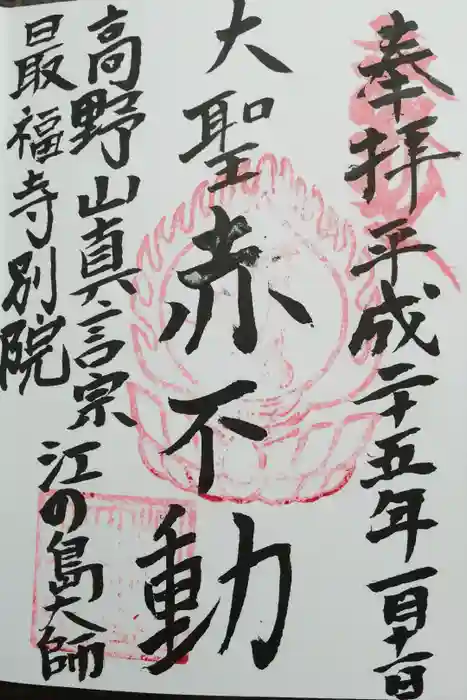 奉拝平成二十五年一月十一日
大聖赤不動
高野山真言宗江の島大師
最福寺別院